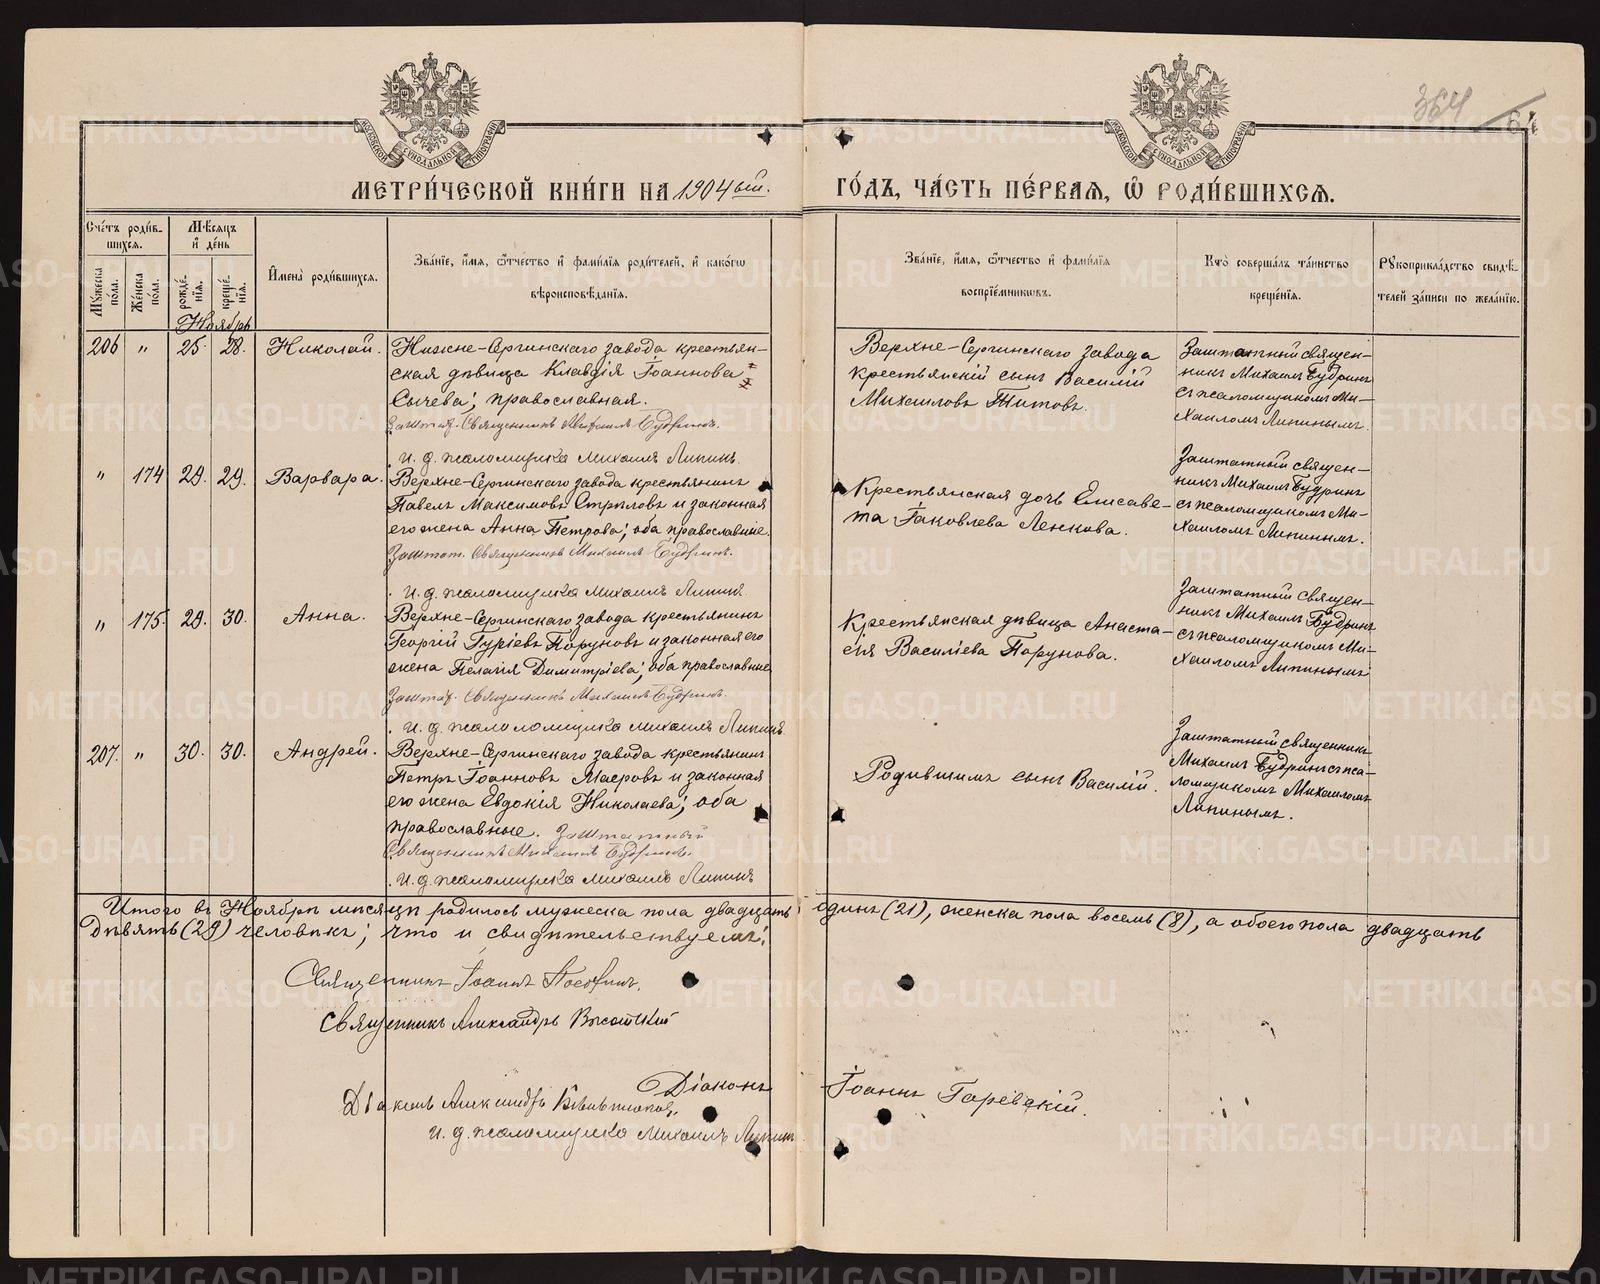 364
МЕТРИЧЕСКОЙ КНИГИ НА 1904ый.
ГОДЪ, ЧАСТЬ ПЕРВАЯ, Ѡ РОДИВШИХСЯ.
Счетъ родив-
шихся.
Мужеска пола.
Женска пола.
Мѣсяцъ
и день
рожде-
нія.
креще-
нія.
Имена родившихся.
Званіе, имя, отчество и фамилія родителей, и какого
вѣроисповѣданія.
Званіе, имя, отчество и фамилія
воспріемниковъ.
Кто совершалъ таинство
крещенія.
Рукоприкладство свидѣ-
телей записи по желанію.
Ноябрь
206 " 25. 28. Николай.
Нижне-Сергинскаго завода крестьян-
ская дѣвица Клавдія Іоаннова
Сычева; православная.
Заштат. Священникъ Михаилъ Будринъ.
и. д. псаломщика Михаилъ Липинъ
Верхне-Сергинскаго завода
крестьянскій сынъ Василій
Михаиловъ Титовъ.
Заштатный священ-
никъ Михаилъ Будринъ
съ псаломщикомъ Ми-
хаиломъ Липинымъ.
" 174 29. 29. Варвара.
Верхне-Сергинскаго завода крестьянинъ
Павелъ Максимовъ Стрѣловъ и законная
его жена Анна Петрова; оба православные.
Заштат. Священникъ Михаилъ Будринъ.
и. д. псаломщика Михаилъ Липинъ
Крестьянская дочь Елисаве-
та Іаковлева Ленкова.
Заштатный священ-
никъ Михаилъ Будринъ
съ псаломщикомъ Ми-
хаиломъ Липинымъ.
" 175. 29. 30. Анна.
Верхне-Сергинскаго завода крестьянинъ
Георгій Гуріевъ Поруновъ и законная его
жена Пелагія Димитріева; оба православные
Заштат. Священникъ Михаилъ Будринъ.
и. д. псаломщика Михаилъ Липинъ
Крестьянская дѣвица Анаста-
сія Василіева Порунова.
Заштатный священ-
никъ Михаилъ Будринъ
съ псаломщикомъ Ми-
хаиломъ Липинымъ
207. " 30. 30. Андрей.
Верхне-Сергинскаго завода крестьянинъ
Петръ Іоанновъ Маеровъ и законная
его жена Евдокія Николаева; оба
православные. Заштатный
Священникъ Михаилъ Будринъ.
и. д. псаломщика Михаилъ Липинъ
Родившимъ сынъ Василій.
Заштатный священникъ
Михаилъ Будринъ съ пса-
ломщикомъ Михаиломъ
Липинымъ.
Итого въ Ноябрѣ мѣсяцѣ родилось мужеска пола двадцать одинъ (21), женска пола восемь (8), а обоего пола двадцать
девять (29) человѣкъ; что и свидѣтельствуемъ:
Священникъ Іоаннъ
Священникъ Александръ Высотскій
Діаконъ Іоаннъ Гаревскій.
Діаконъ Александръ
и. д. псаломщика Михаилъ Липинъ
METRIKI.GASO-URAL.RU